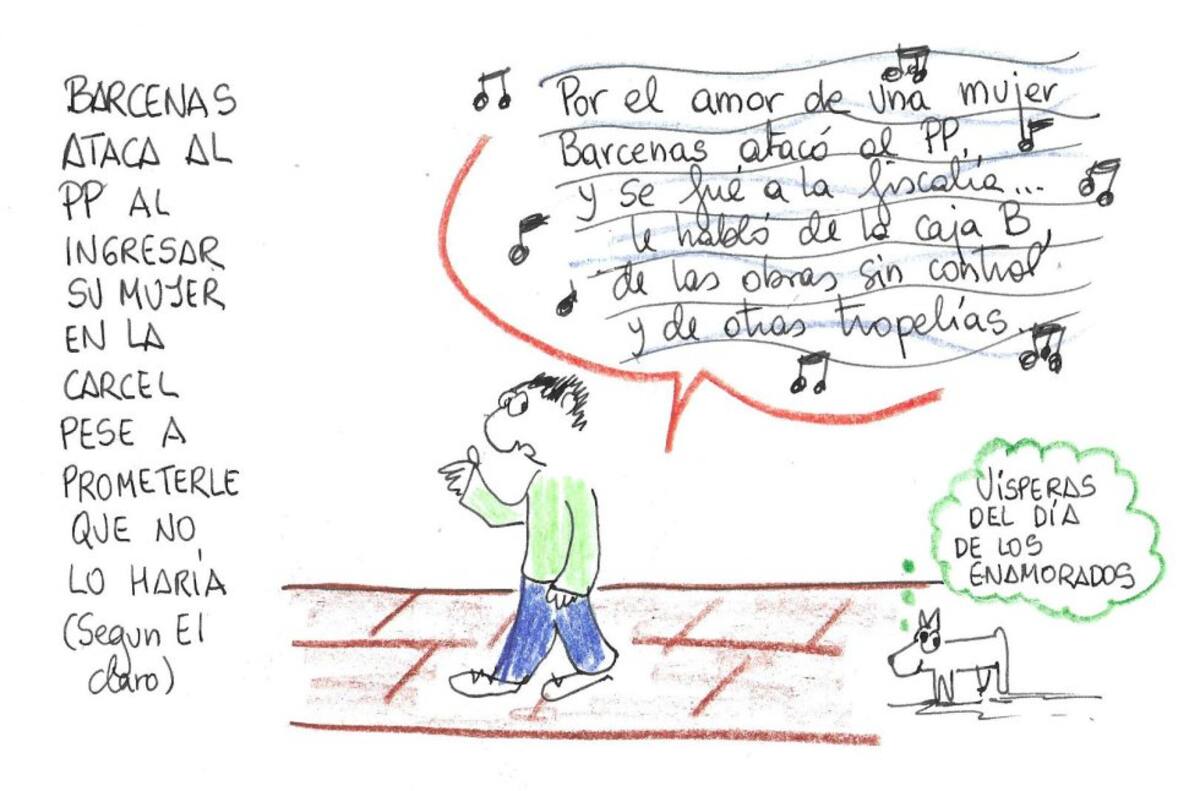 BARCENAS
ATACA AL
PP AL
INGRESAR
SU MUJER
EN LA
CARCEL
PESE A
PROMETERLE
QUE NO
LO HARÍA
(Segun El
claro)
Por el amor de una mujer
Barcenas atacó al PP,
y se fué a la fiscalía...
le habló de la caja B,
de las obras sin control
y de otras tropelías...
VÍSPERAS
DEL DÍA
DE LOS
ENAMORADOS